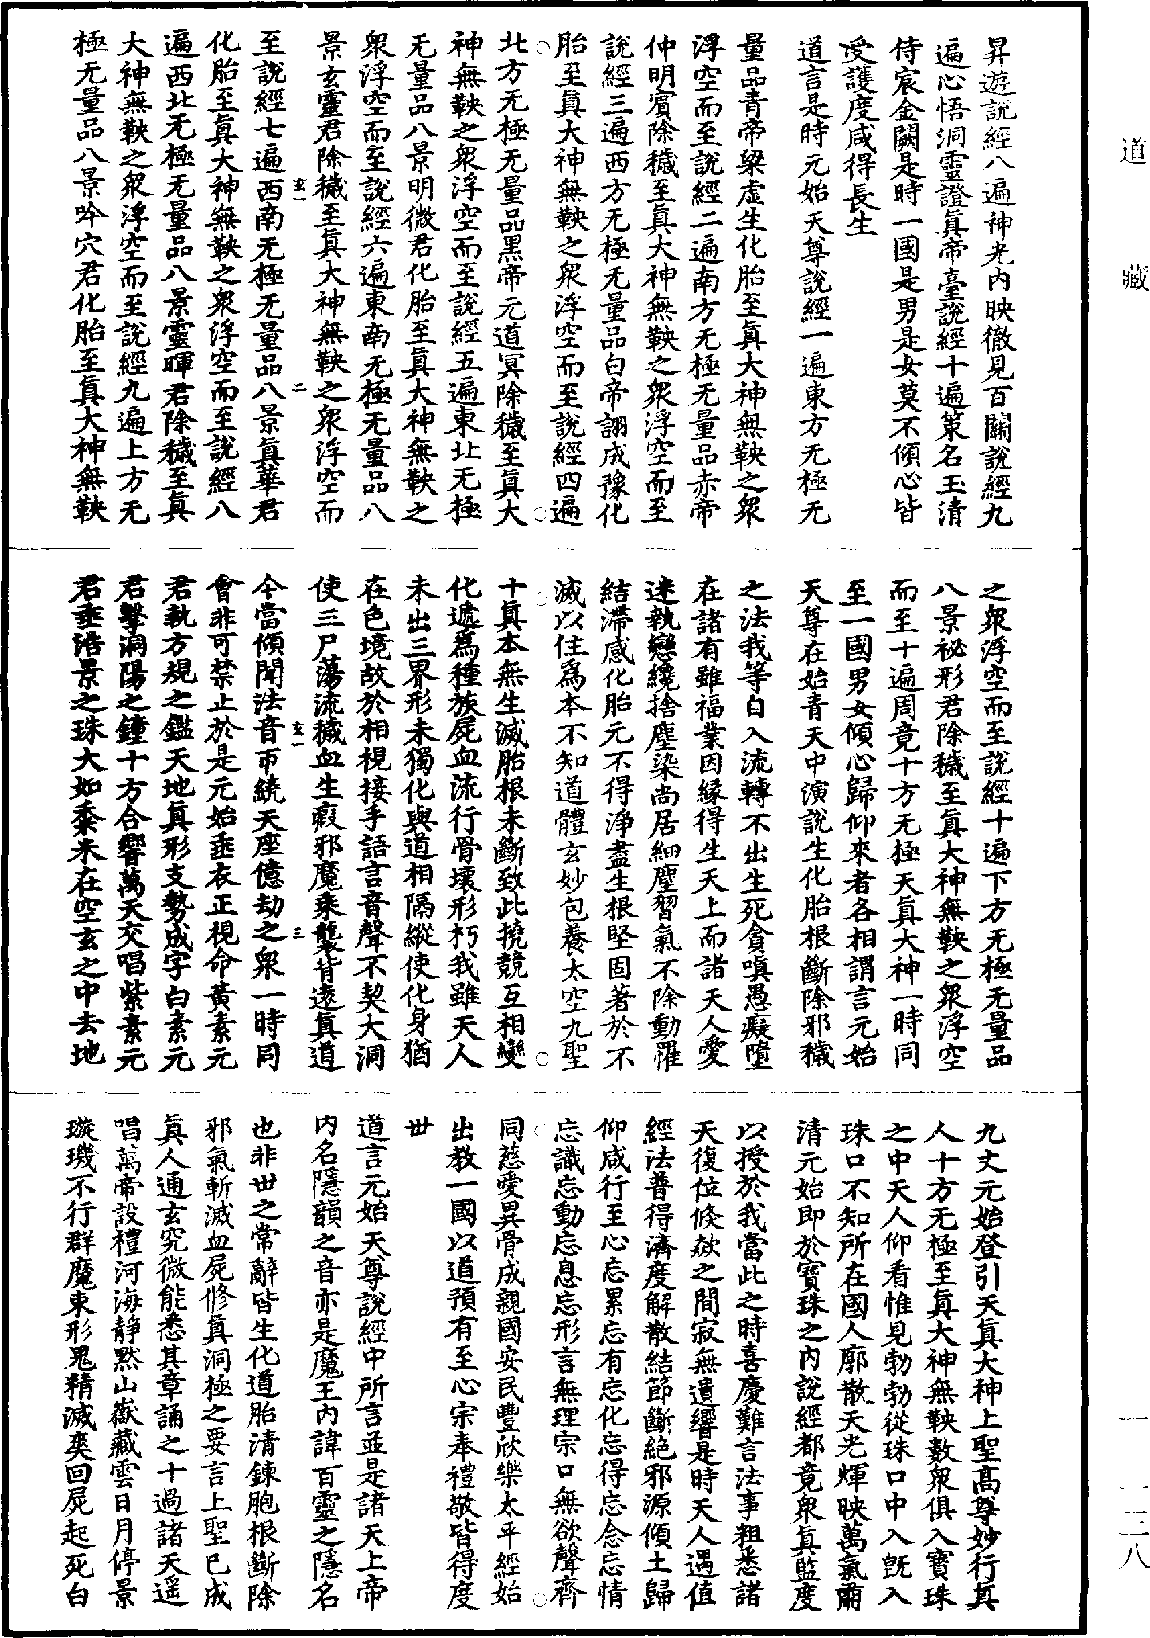 道藏
一
一三八
昇遊說經八遍神光內映徹見百關說經九
遍心悟洞靈證真帝臺說經十遍策名玉清
侍宸金闕是時一國是男是女莫不傾心皆
受護度咸得長生
道言是時元始天尊說經一遍東方无極无
量品青帝梁虛生化胎至真大神無鞅之衆
浮空而至說經二遍南方无極无量品赤帝
仲明濱除穢至真大神無鞅之衆浮空而至
說經三遍西方无極无量品白帝詡成豫化
胎至真大神無鞅之衆浮空而至說經四遍
北方无極无量品黑帝元道冥除穢至真大
神無鞅之衆浮空而至說經五遍東北无極
无量品八景明微君化胎至真大神無鞅之
衆浮空而至說經六遍東南无極无量品八
景玄靈君除穢至真大神無鞅之衆浮空而
玄一
二
至說經七遍西南无極无量品八景真華君
化胎至真大神無鞅之衆浮空而至說經八
遍西北无極无量品八景靈暉君除穢至真
大神無鞅之衆浮空而至說經九遍上方无
極无量品八景吟穴君化胎至真大神無鞅
之衆浮空而至說經十遍下方无極无量品
八景祕形君除穢至真大神無鞅之衆浮空
而至十遍周竟十方无極天真大神一時同
至一國男女傾心歸仰來者各相謂言元始
天尊在始青天中演說生化胎根斷除邪穢
之法我等自入流轉不出生死貪嗔愚癡墮
在諸有雖福業因緣得生天上而諸天人愛
迷執戀纔捨塵染尚居細塵習氣不除動罹
結滯感化胎元不得淨盡生根堅固著於不
滅以住爲本不知道體玄妙包養太空九聖
十真本無生滅胎根未斷致此撓競互相變
化遞爲種族屍血流行骨壞形朽我雖天人
未出三界形未獨化與道相隔縱使化身猶
在色境故於相視接手語言音聲不契大洞
使三尸蕩流穢血生瑕邪魔乘襲背遠真道
玄一
三
今當傾聞法音帀繞天座億劫之衆一時同
會非可禁止於是元始垂衣正視命黃素元
君執方規之鑑天地真形支勢成字白素元
君擊洞陽之鐘十方合響萬天交唱紫素元
君垂浴景之珠大如黍米在空玄之中去地
九丈元始登引天真大神上聖高尊妙行真
人十方无極至真大神無鞅數衆俱入寶珠
之中天人仰看惟見勃勃從珠口中入旣入
珠口不知所在國人廓散天光煇映萬氣肅
清元始即於寶珠之內說經都竟衆真監度
以授於我當此之時喜慶難言法事粗悉諸
天復位倏欻之間寂無遺響是時天人遇值
經法普得濟度解散結節斷絕邪源傾土歸
仰咸行至心忘累忘有忘化忘得忘念忘情
忘識忘動忘息忘形言無理宗口無欲聲齊
同慈愛異骨成親國安民豐欣樂太平經始
出教一國以道預有至心宗奉禮敬皆得度
世
道言元始天尊說經中所言並是諸天上帝
內名隱韻之音亦是魔王內諱百靈之隱名
也非世之常辭皆生化道胎清鍊胞根斷除
邪氣斬滅血屍修真洞極之要言上聖已成
真人通玄究微能悉其章誦之十過諸天遥
唱萬帝設禮河海靜默山嶽藏雲日月停景
璇璣不行群魔束形鬼精滅爽回屍起死白